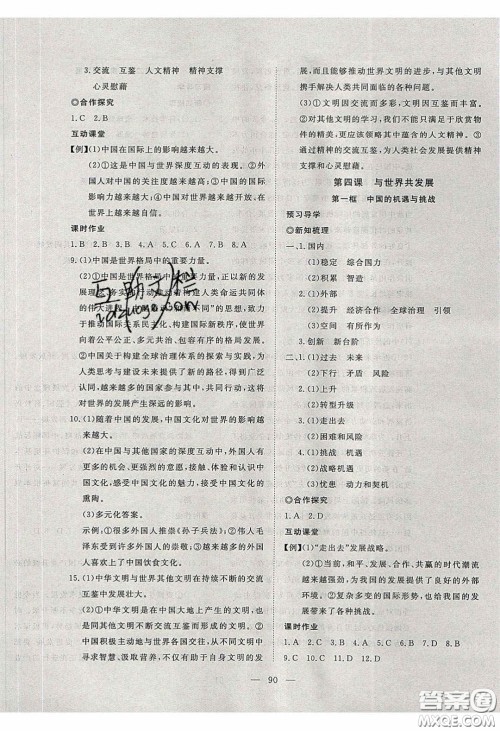 3. 交流 互鉴 人文精神 精神支撑
心灵慰藉
◎合作探究
1. C 2. B
互动课堂
【例】(1)中国在国际上的影响越来越大。
(2)①这是中国与世界深度互动的表现。②外国人对中国的关注度越来越高。③中国的国际影响力越来越大。④中国越来越开放,在世界上越来越自信。
课时作业
1. B 2. B 3. A 4. B 5. A 6. B 7. B 8. B
9. (1)中国是世界格局中的重要力量。
(2)①中国是世界格局中的重要力量,正以新的发展
的思想,致力
于推动国际关系民主化,构建国际新秩序,推动世界向着公平公正、多元共治、包容有序的格局发展。
②中国关于构建全球治理体系的探索与实践,为人类思考与建设未来提供了新的路径,得到广泛认同,越来越多的国家参与其中,共同行动,这将对世界的发展产生深远的影响。
10. (1)随着中国的发展,中国文化对世界的影响越来越大。
(2)在中国与其他国家的深度互动中,外国人有更多的机会,更强烈的意愿,接触、体验和认识中国文化,感受中国文化的魅力,接受中国文化的熏陶。
(3)多元化答案。
示例:很多外国人推崇《孙子兵法》;伟人毛泽东受到许多外国人的崇拜;越来越多的外国人喜欢上了中国饮食文化。
11. (1)中华文明与世界其他文明在持续不断的交流互鉴中发展壮大。
(2)①中华文明是在中国大地上产生的文明,也是同其他文明不断交流互鉴而形成的文明。②中国积极主动地与世界各国交往,从不同文明中寻求智慧、汲取营养,不仅有助于自身文明的发
展,而且能够推动世界文明的进步,与其他文明携手解决人类共同面临的各种问题。
(3)①文明因交流而多彩,文明因互鉴而丰富。②对待不同文明,我们不能只满足于欣赏物件的精美,更应该领略其中蕴含的人文精神。③通过文明的交流互鉴,为人类社会发展提供精神支撑和心灵慰藉。
第四课 与世界共发展
第一框 中国的机遇与挑战
预习导学
◎新知梳理
一、1. 国内
(1)稳定 综合国力
(2)积累 智造
(3)外部
(2)提升 经济合作 全球治理 引领
(3)空间 有所作为
3. 创新 新台阶
二、1. (1)过去 未来
(2)下行 矛盾 风险
2. (1)上升
(2)转型升级
3. (1)走出去
(2)困难和风险
4. (1)战略机遇
(2)忧患 动力 机遇
◎合作探究
1. A 2. D
互动课堂
【例】(1)“走出去”发展战略。
(2)①当前,和平、发展、合作、共赢的时代潮流越来越强劲,为我国发展提供了良好的外部环境。②面对复杂多变的国际形势,我们也会受到一定的影响。
课时作业
1. D 2. A 3. D 4. C 5. A 6. C 7. D 8. D
9. C 10. A 11. D 12. D
— 90 —
答案圈